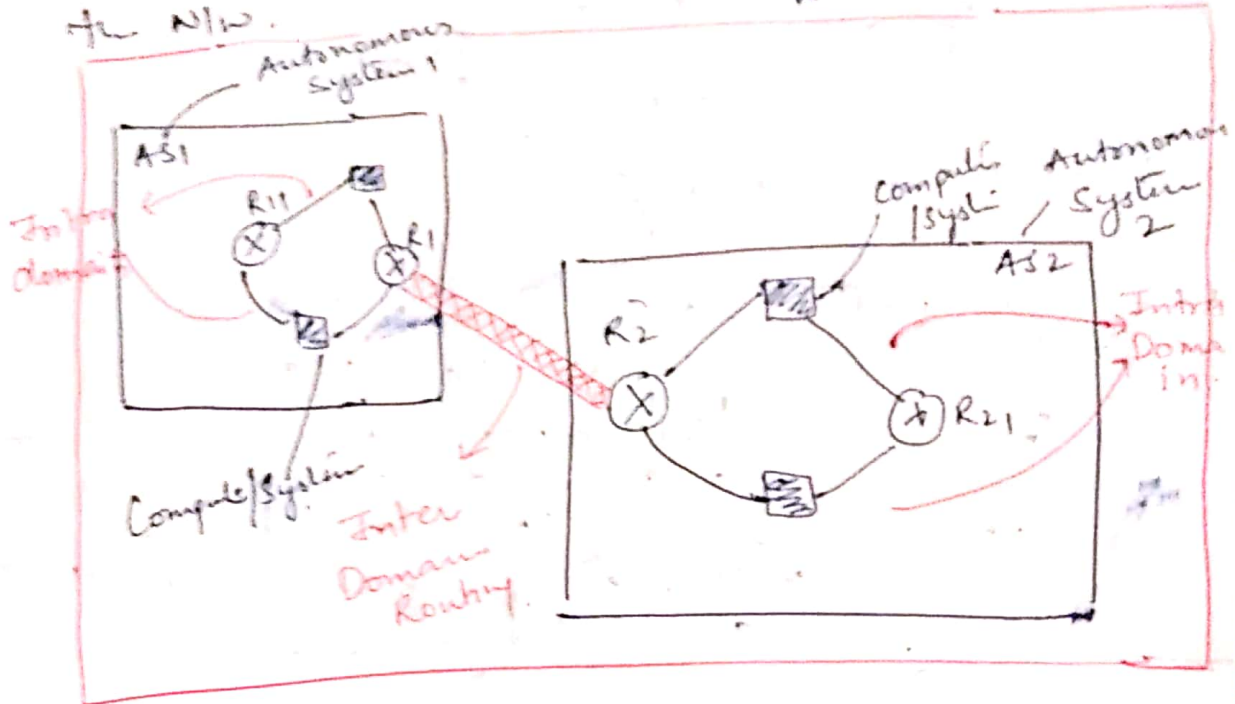 the N/W.
Autonomous
System 1
AS1
R11
R1
Intra
domain
Computer/System
Inter
Domain
Routing
Autonomous
System
2
/Syst
AS2
R2
R21
Intra
Doma
in